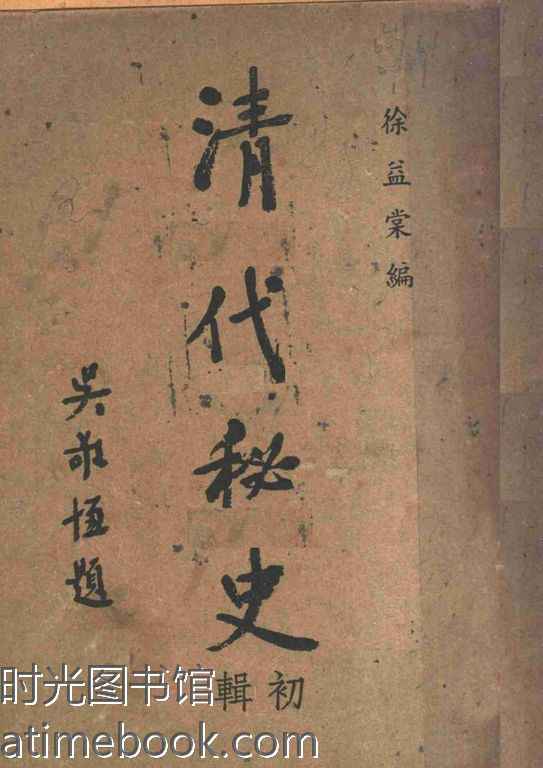 徐益棠編
清代秘史
初輯
吴敬恆題
时光图书馆
atimebook.com